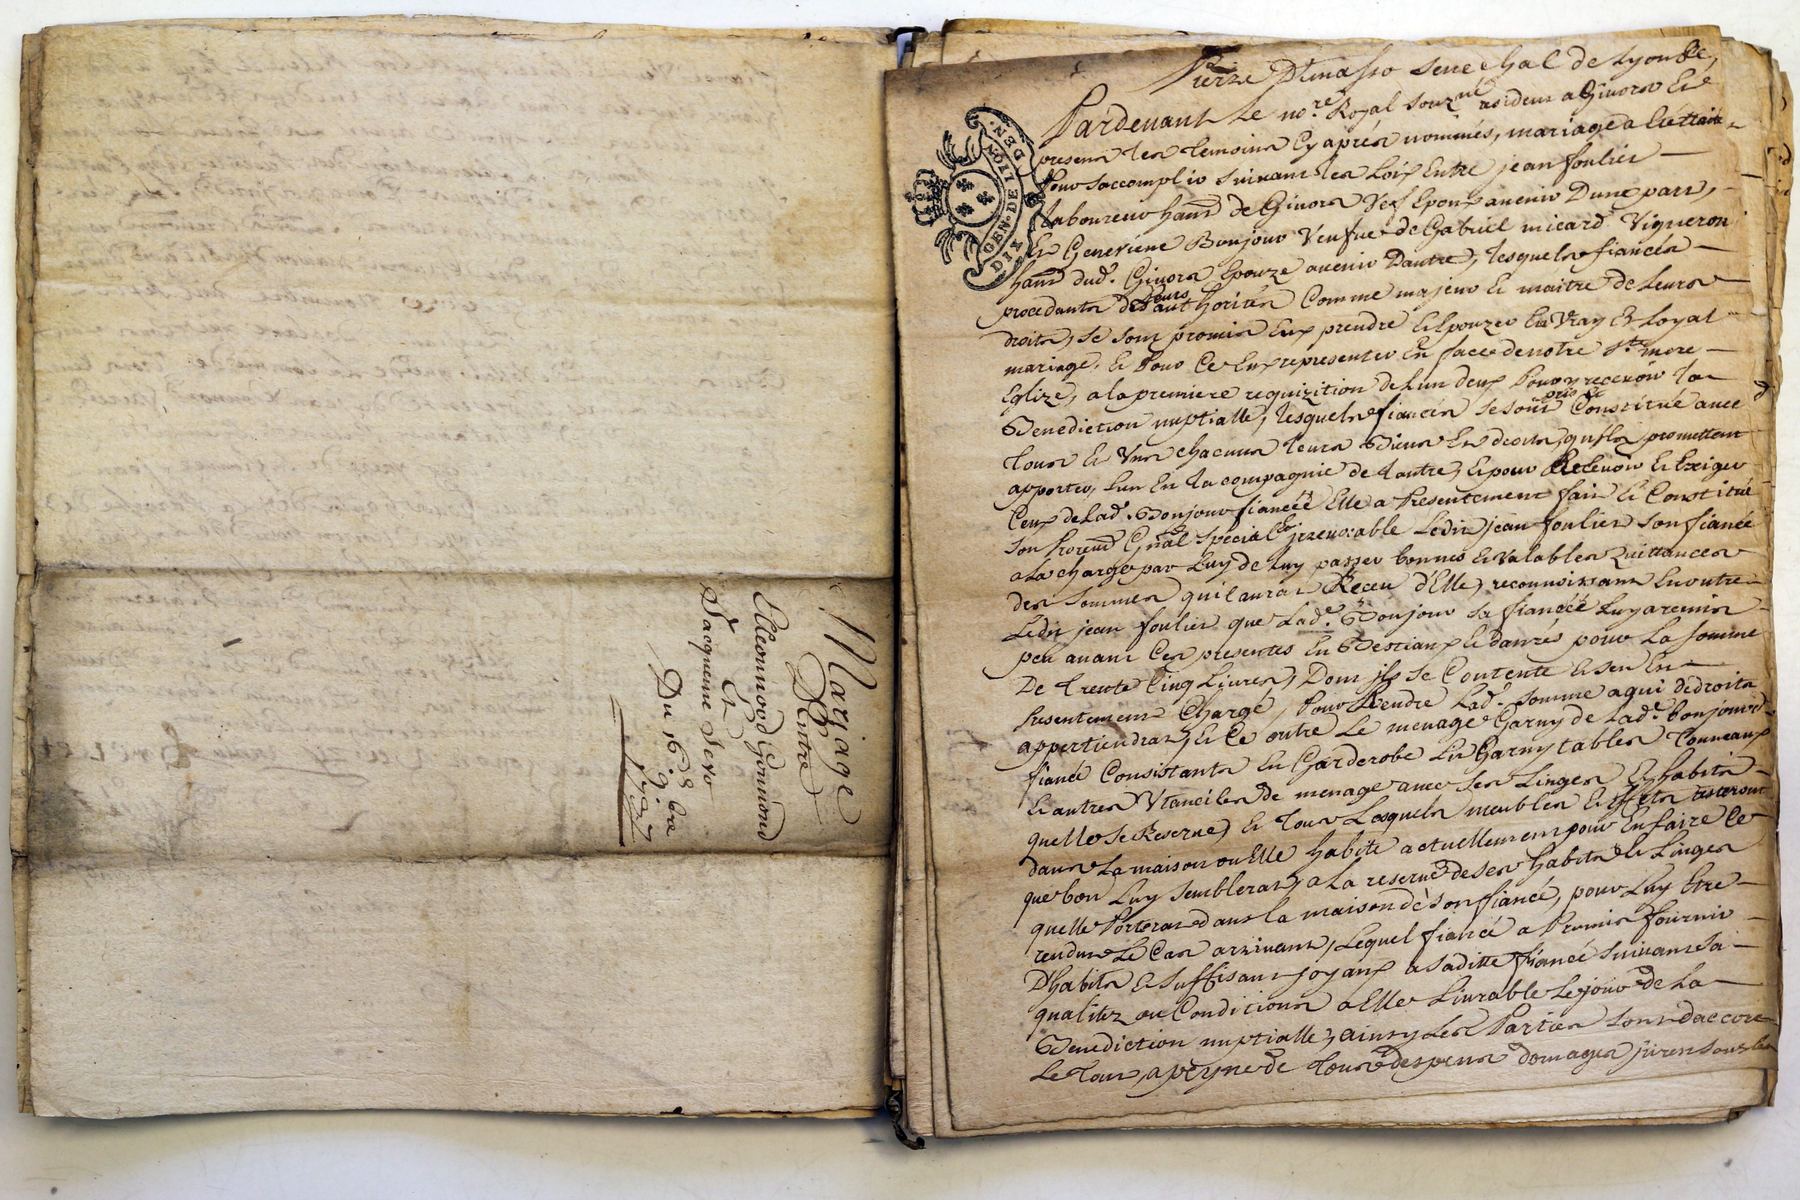 Mariage
Entre
Gounond
Et
Jacqueme
Du 16e 8bre
DEN.
GEN. DE LION.
DIX
senechal de Lyon &c,
Pardevant Le nore. Royal souzné residant a Givors Et
presens les temoins Cy aprés nommés, mariage a été traité
Pour saccomplir suivant les Loix Entre jean foulier
laboureur hant de Givors Epoux avenir Dune part,
Et Genevieve Bonjour Veufve de Gabriel micard Vigneron
hant dud. Givors Epouze avenir Dautre, lesquels fiancés
procedants de leurs authorités Comme majeur & maitre de Leurs
droits, se sont promis Eux prendre & Epouzer En Vray & Loyal
mariage, & Pour Ce Eux representer En face de notre Ste. mere
Eglize, a la premiere requizition de Lun deux Pour y recevoir la
Benediction nuptialle, lesquels fiancés se sont Constitué avec
tous & Uns chacuns leurs Biens Et droits, quils promettent
apporter, Lun En la compagnie de Lautre, & pour Recevoir & Exiger
Ceux de Lad. Bonjour fiancée Elle a Presentement fait & Constitué
son Procur. Gnal special & irrevocable Ledit jean foulier son fiancé
a la charge par Luy de Luy passer bonnes & valables Quittances
des sommes quil aurat Receu d'Elle, reconnoissant En outre
Ledit jean foulier que Lade. Bonjour sa fiancée Luy a remis
peu avant Ces presentes En Bestiaux & danrés pour La somme
De trente Cinq Livres, Dont il se Contente & sen En
Presentement Chargé, Pour Rendre Lad. somme a qui de droit
appartiendrat, & Ce outre Le menage Garny de Lade. bonjour
fiancé Consistants En Garderobe Lit Garny tables Tonneaux
& autres Utancilles de menage avec ses Linges & habits
quelle se Reserve, & tous Lesquels meubles & effets resteront
dans La maison ou Elle habite actuellement pour En faire Ce
que bon Luy semblerat, a La reserve de ses habits & Linges
quelle Porterat dans la maison de son fiancé, pour Luy Etre
rendus Le Cas arrivant, Lequel fiancé a Promis fournir
Dhabits & suffisant joyaux a sa ditte fiancé suivant sa
qualitez ou Condicions a Elle Livrable Le jour de La
Benediction nuptialle, ainsy Les Parties sont daccord
Le tout, a peyne de tous despens domages